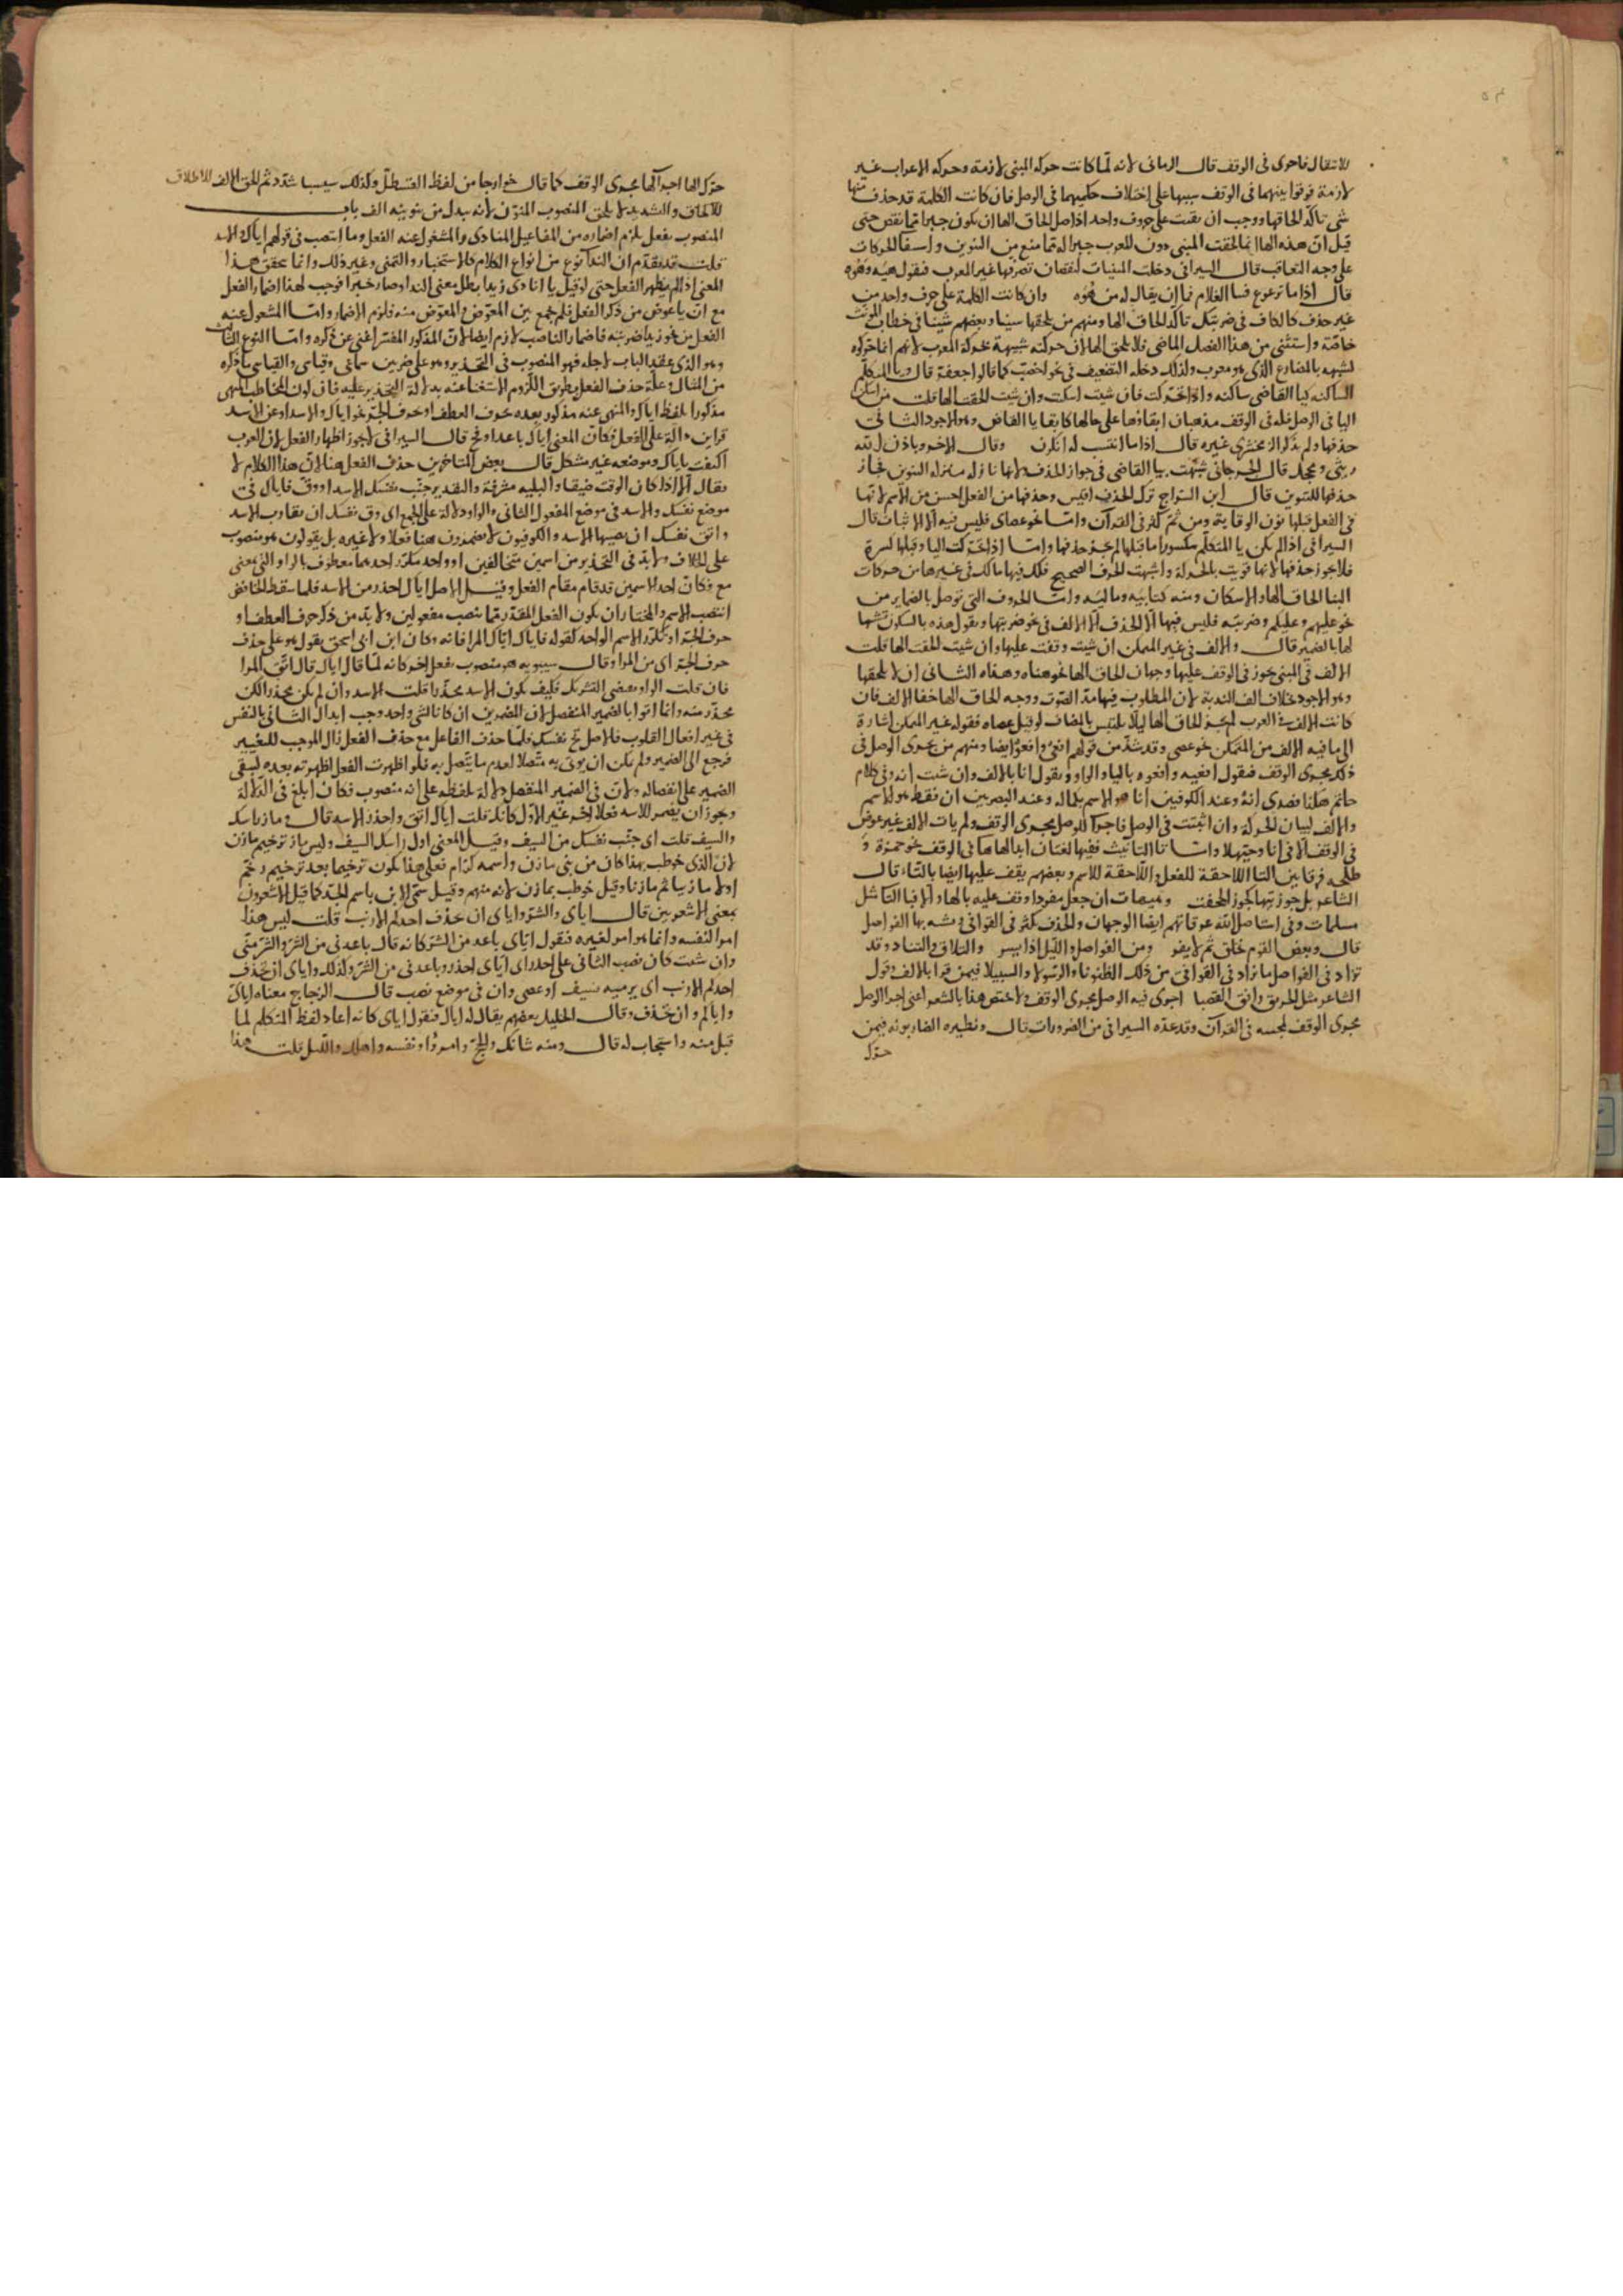 للانتقال فاحرى في الوقف قال الرماني لانه لما كانت حركة المبني لازمة وحركة الاعراب غير
لازمة فرقوا بينهما في الوقف تنبيها على اختلاف حكميهما في الوصل فان كانت الكلمة قد حذف منها
شي تاكد لحاقها ووجب ان بقيت على حرف واحد اذ اصل الحاق الها ان يكون جبرا لما نقص حتى
قيل ان هذه الها انما لحقت المبني دون المعرب جبرا له لما منع من التنوين
على وجه التعاقب قال السيرافي دخلت المبنيات لنقصان تصرفها غير المعرب فتقول
قال اذا ما ترعرع فينا الغلام فما ان يقال له من هوه وان كانت الكلمة على حرف واحد من
غير حذف كالكاف في ضربتك تاكد لحاق الها ومنهم من يلحقها سينا وبعضهم شينا في خطاب المونث
خاصة واستثني من هذا الفصل الماضي فلا يلحق الها لان حركته شبيهة بحركة المعرب لانهم انما حركوه
لشبهه بالمضارع الذي هو معرب ولذلك دخله التضعيف في نحو اخصب كما قالوا جعفر قال ويا المتكلم
الساكنة كيا القاضي ساكنه واذا تحركت فان شيت اسكنت وان شيت الحقت الها قلت من اسكن
اليا في الوصل فله في الوقف مذهبان ابقاوها على حالها كابقا يا القاضي وهو الاجود الثاني
حذفها ولم يذكر الزمخشري غيره قال اذا ما انتسبت له انكرن وقال الاخر وباذن الله
ريثي وعجل قال الجرجاني شبهت بيا القاضي في جواز الحذف لانها نازلة منزلة التنوين فجاز
حذفها للتنوين قال ابن السراج ترك الحذف اقيس وحذفها من الفعل احسن من الاسم لانها
في الفعل قبلها نون الوقاية ومن ثم كثر في القرآن واما نحو عصاي فليس فيه الا الاثبات قال
السيرافي اذا لم يكن يا المتكلم مكسورا ما قبلها لم يجز حذفها واما اذا تحركت اليا وقبلها كسرة
فلا يجوز حذفها لانها قويت بالحركة واشبهت الحرف الصحيح فلك فيها مالك في غيرها من حركات
البنا الحاق الها والاسكان ومنه كتابيه وماليه واما الحروف التي توصل بالضماير من
نحو عليهم وعليكم وضربته فليس فيها الا الحذف الا الالف في نحو ضربتها وتقول هذه بالسكون تشبها
لها بالضمير قال والالف في غير المتمكن ان شيت وقفت عليها وان شيت الحقت الها قلت
الالف في المبني يجوز في الوقف عليها وجهان لحاق الها نحو هناه وهذاه الثاني ان لا يلحقها
وهو الاجود بخلاف الف الندبة لان المطلوب فيها مد الصوت ووجه لحاق الها خفا الالف فان
كانت الالف في المعرب لم يجز لحاق الها ليلا يلتبس بالمضاف لو قيل عصاه فقوله غير المتمكن اشارة
الى ما فيه الالف من المتمكن نحو عصى وقد شذ من قولهم افعى وافعو ايضا ومنهم من يجري الوصل في
ذلك مجرى الوقف فتقول افعيه وافعوه باليا والواو وتقول انا بالالف وان شيت انه وفي كلام
حاتم هكذا فصدي انه وعند الكوفيين انا هو الاسم بكماله وعند البصريين ان فقط هو الاسم
والالف لبيان الحركة وان اثبتت في الوصل فاجرآ للوصل مجرى الوقف ولم يات الالف غير عوض
في الوقف الا في انا وحيهلا واما تا التانيث ففيها لغتان ابدالها ها في الوقف نحو حمزة و
طلحه فرقا بين التا اللاحقة للفعل واللاحقة للاسم وبعضهم يقف عليها ايضا بالتاء قال
الشاعر بل جوز تيهاء كجوز الحجفت وهيهات ان جعل مفردا وقف عليه بالها والا فبالتا مثل
مسلمات وفي استاصل الله عرقاتهم ايضا الوجهان والحذف يكثر في القوافي وشبه بها الفواصل
قال وبعض القوم يخلق ثم لا يفر ومن الفواصل والليل اذا يسر والتلاق والتناد وقد
تزاد في الفواصل ما تزاد في القوافي من ذلك الظنونا والرسولا والسبيلا فيمن قرا بالالف وقول
الشاعر مثل الحريق وافق القصبا اجرى فيه الوصل مجرى الوقف ولا يختص هذا بالشعر اعني اجرا الوصل
مجرى الوقف لمجيئه في القرآن وقد عده السيرافي من الضرورات قال ونظيره الضاربونه فيمن
حرك
حرك الها اجرآ لها مجرى الوقف كما قال خوارجا من لفظ القسطل وكذلك سيسبا شدد ثم الحق الالف للاطلاق
للالحاق والتشديد لا يلحق المنصوب المنون لانه يبدل من تنوينه الف باب
المنصوب بفعل يلزم اضماره من المفاعيل المنادى والمشغول عنه الفعل وما انتصب في قولهم اياك والاسد
قلت قد تقدم ان الندا نوع من انواع الكلام كالاستخبار والتمني وغير ذلك وانما يحقق هذا
المعنى اذا لم يظهر الفعل حتى لو قيل يا انادي زيدا بطل معنى الندا وصار خبرا فوجب لهذا اضمار الفعل
مع ان يا عوض من ذكر الفعل فلم يجمع بين المعوض والمعوض منه فلزم الاضمار واما المشغول عنه
الفعل من نحو زيدا ضربته فاضمار الناصب لازم ايضا لان المذكور المفسر اغنى عن ذكره واما النوع الثالث
وهو الذي عقد الباب لاجله فهو المنصوب في التحذير وهو على ضربين سماعي وقياسي والقياسي ما ذكره
من المثال وعلة حذف الفعل بطريق اللزوم الاستغنا عنه بدلالة التحذير عليه فان كون المخاطب المنهي
مذكورا بلفظ اياك والمنهي عنه مذكور بعده بحرف العطف او حرف الجر نحو اياك والاسد او عن الاسد
قراين دالة على الفعل فكان المعنى اياك باعد او نح قال السيرافي لا يجوز اظهار الفعل لان العرب
اكتفت باياك وموضعه غير مشكل قال بعض المتاخرين حذف الفعل هنا لان هذا الكلام لا
يقال الا اذا كان الوقت ضيقا والبلية مشرفة والتقدير جنب نفسك الاسد او وق فاياك في
موضع نفسك والاسد في موضع المفعول الثاني والواو دلالة على الجمع اي وق نفسك ان تقارب الاسد
واتق نفسك ان يصيبها الاسد والكوفيون لا يضمرون هنا فعلا ولا غيره بل يقولون هو منصوب
على الخلاف ولا بد في التحذير من اسمين متخالفين او واحد مكرر احدهما معطوف بالواو التي بمعنى
مع وكان احد الاسمين قد قام مقام الفعل وقيل الاصل اياك احذر من الاسد فلما سقط الخافض
انتصب الاسم والمختار ان يكون الفعل المقدر مما ينصب مفعولين ولا بد من ذكر حرف العطف او
حرف الجر او تكرر الاسم الواحد كقوله فاياك اياك المرا فانه وكان ابن ابي اسحق يقول هو على حذف
حرف الجر اي من المرا وقال سيبويه هو منصوب بفعل اخر كانه لما قال اياك قال اتق المرا
فان قلت الواو يقتضي التشريك فكيف يكون الاسد محذرا قلت الاسد وان لم يكن محذرا لكن
محذر منه وانما اتوا بالضمير المنفصل لان الضميرين ان كانا لشي واحد وجب ابدال الثاني بالنفس
في غير افعال القلوب فالاصل نح نفسك فلما حذف الفاعل مع حذف الفعل زال الموجب للتغيير
فرجع الى الضمير ولم يكن ان يوتى به متصلا لعدم ما يتصل به فلو اظهرت الفعل اظهرته بعده ليبقى
الضمير على انفصاله ولان في الضمير المنفصل دلالة بلفظه على انه منصوب فكان ابلغ في الدلالة
ويجوز ان يضمر للاسد فعلا اخر غير الاول كانك قلت اياك اتق واحذر الاسد قال وماز راسك
والسيف قلت اي جنب نفسك من السيف وقيل المعنى اول راسك السيف وليس ماز ترخيم مازن
لان الذي خوطب بهذا كان من بني مازن واسمه كرام فعلى هذا يكون ترخيما بعد ترخيم رخم
اولا مازنيا ثم مازنا وقيل خوطب بمازن لانه منهم وقيل سمي الابن باسم الجد كما قيل الاشعرون
بمعنى الاشعريين قال اياي والشر واياي ان يحذف احدكم الارنب قلت ليس هذا
امرا لنفسه وانما هو امر لغيره فتقول اياي باعد من الشر كانه قال باعدني من الشر والشر مني
وان شيت كان نصب الثاني على احذر اي اياي احذر وباعدني من الشر وكذلك واياي ان يحذف
احدكم الارنب اي يرميه بسيف او عصى وان في موضع نصب قال الزجاج معناه اياي
واياكم وان يحذف وقال الخليل بعضهم يقال له اياك فتقول اياي كانه اعاد لفظ المتكلم لما
قبل منه واستجاب له قال ومنه شانك والحج وامرءا ونفسه واهلك والليل قلت هذا